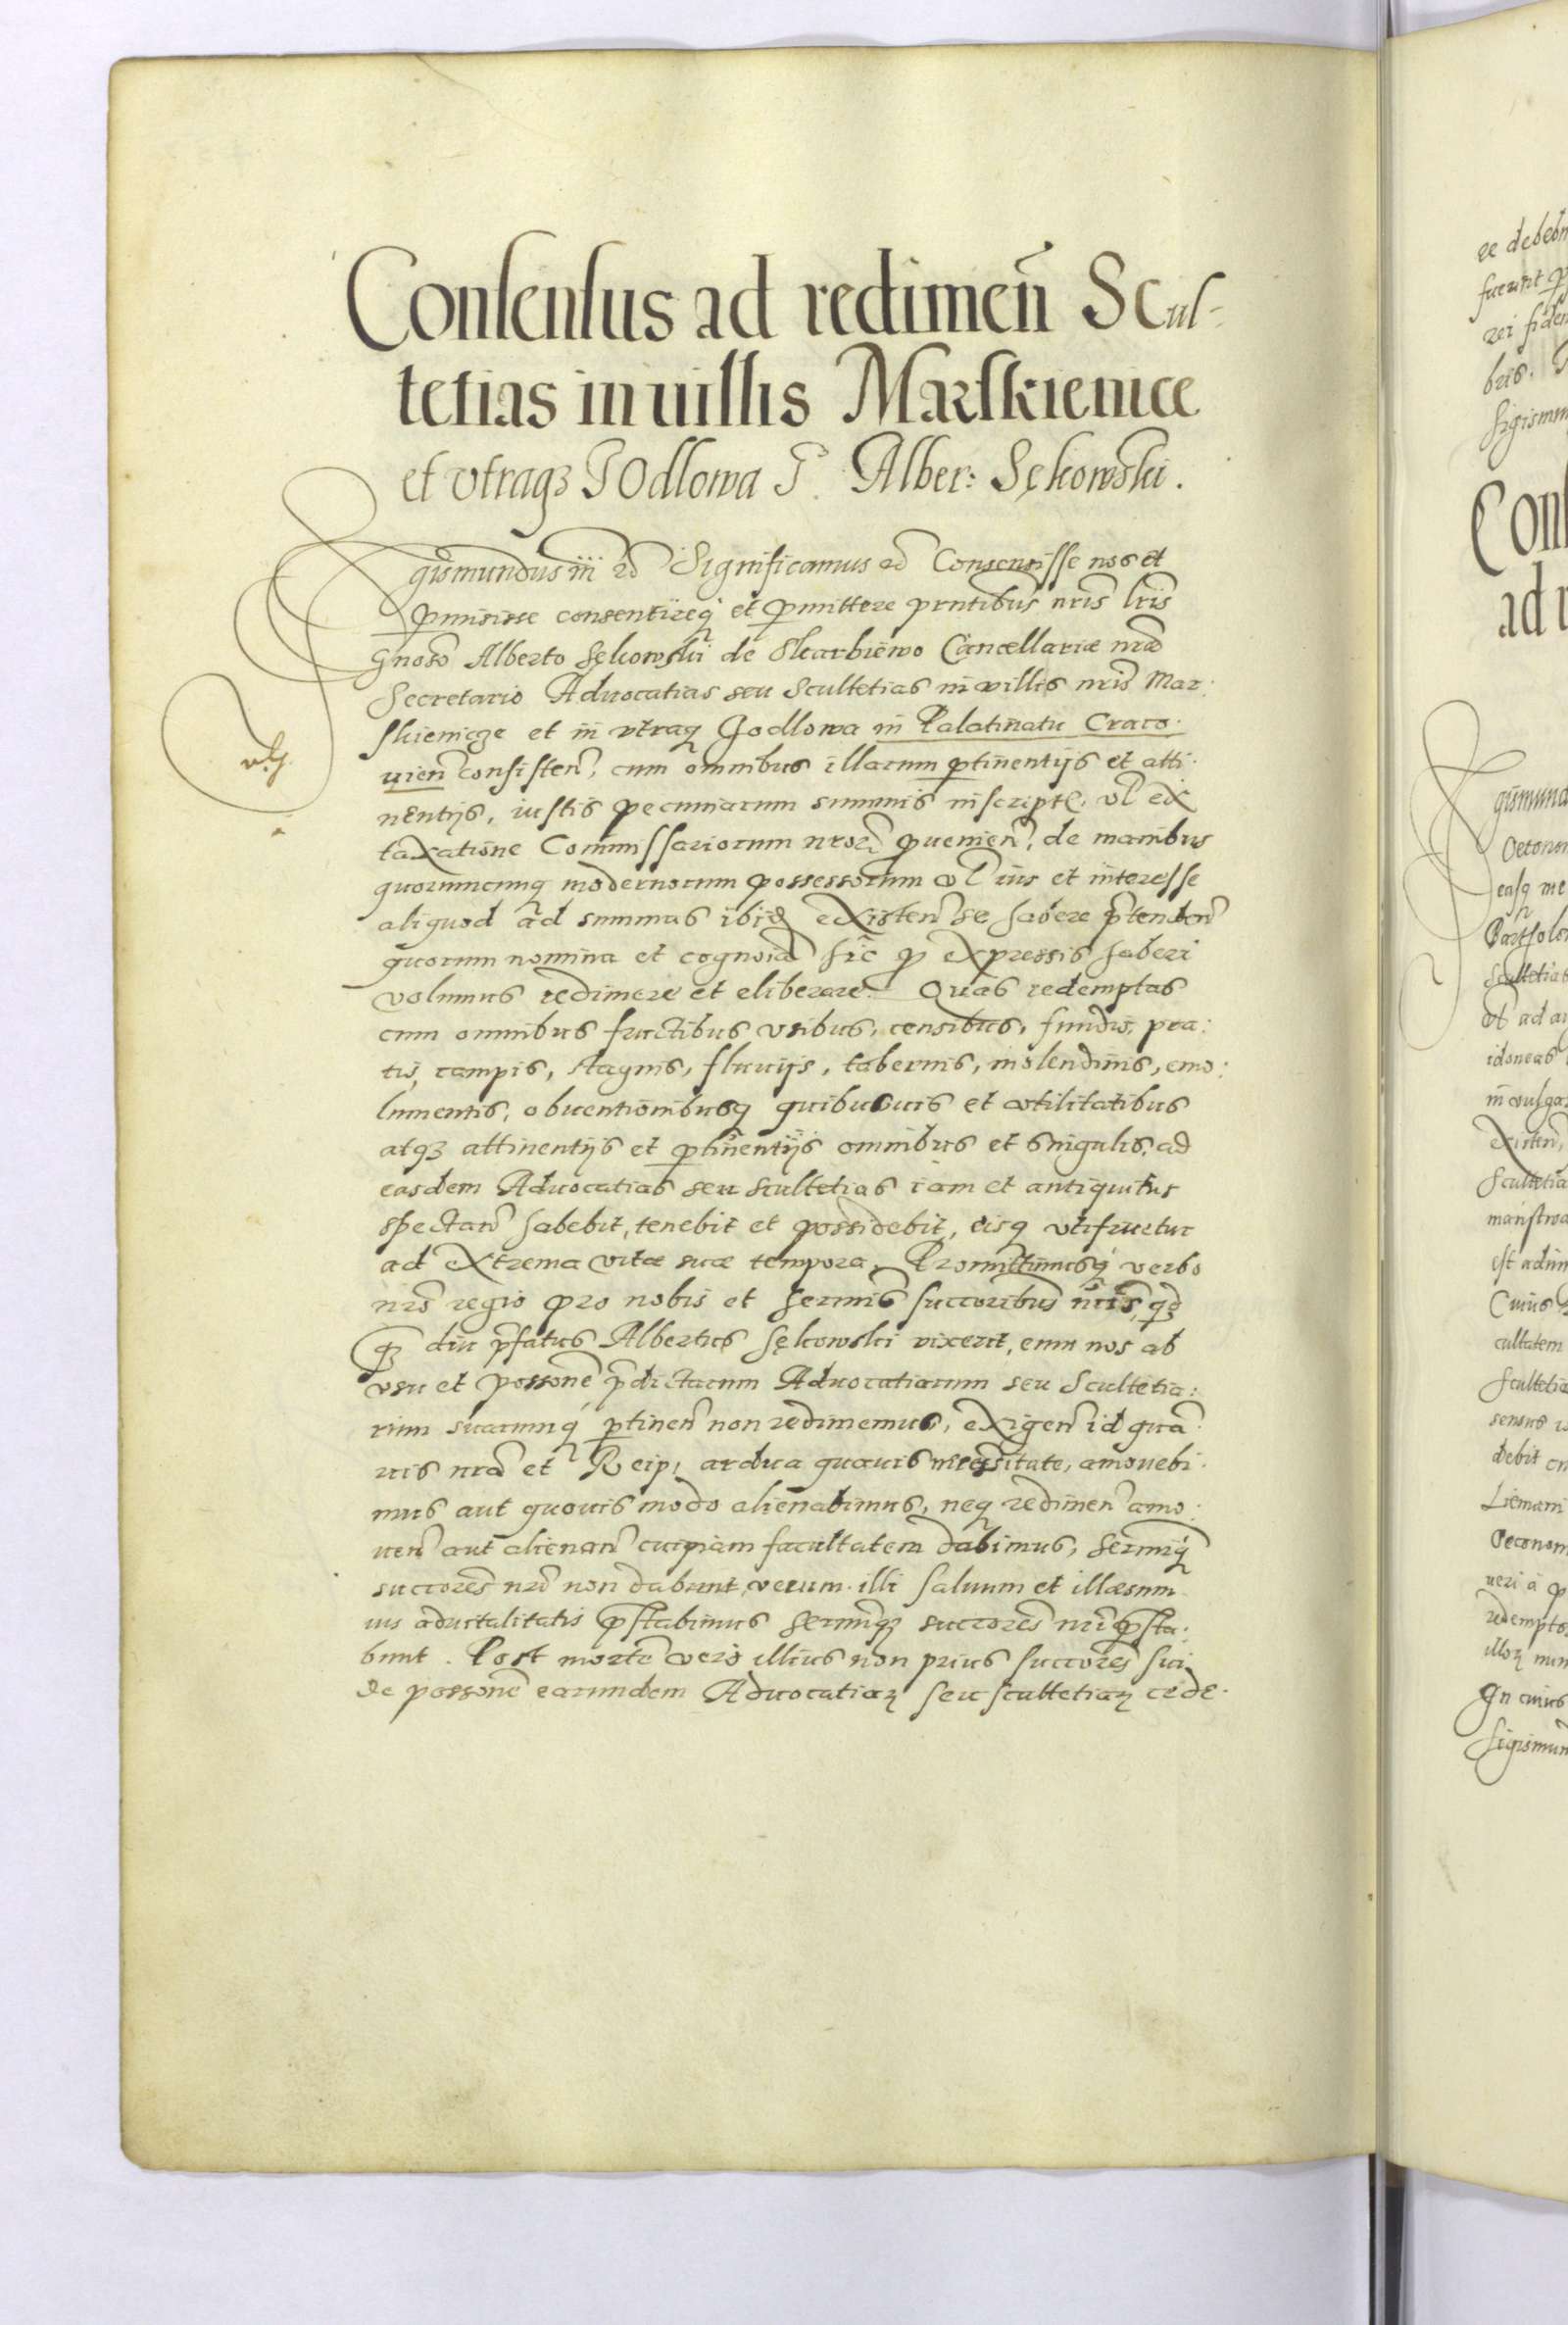 Consensus ad redimen̄ Scul-
tetias in uillis Marskienice
et vtraqꝫ JOdlowa G. Alber: Sękowski.
Sigismundus iii ec Significamus ec Consensisse nos et
ꝑmisisse consentireqꝫ et ꝑmittere prntibus nris lris
Gnoso Alberto Sękowski de Skarbiewo Cancellariæ nræ
Secretario Aduocatias seu Scultetias in villis nris Mar:
skienicze et in vtraqꝫ Jodlowa in Palatinatu Craco:
uien̄ consisten̄, cum omnibus illarum ꝑtinentijs et atti:
nentijs, iustis pecuniarum summis inscriptꝭ, vl ex
taxatione Commissariorum nrorꝫ ꝓuenien̄, de manibus
quorumcunqꝫ modernorum possessorum vl ius et interesse
aliquod ad summas ibidē existen̄ se habere p̄tenden̄
quorum nomina et cognoīa hic ꝓ expressis haberi
volumus redimere et eliberare. Quas redemptas
cum omnibus fructibus vsibus, censibus, fundis, pra:
tis, campis, stagnis, fluuijs, tabernis, molendinis, emo:
lumentis, obuentionibusqꝫ quibusuis et vtilitatibus
atqꝫ attinentijs et ꝑtinentijs omnibus et singulis, ad
easdem Aduocatias seu scultetias iam et antiquitus
spectan̄ habebit, tenebit et possidebit, eisqꝫ vtifruetur
ad extrema vitæ suæ tempora. Promittimusqꝫ verbo
nro regio pro nobis et sermis succoribus nris, qd
qꝫ diu p̄fatus Albertus Sękowski vixerit, eum nos ab
vsu et possone p̄dictarum Aduocatiarum seu Scultetia:
rum suarumqꝫ ꝑtinen̄ non redimemus, exigen̄ id qua:
uis nra et Reip: ardua quauis necessitate, amouebi:
mus aut quouis modo alienabimus, neqꝫ redimen̄ amo:
uen̄ aut alienan̄ cuipiam facultatem dabimus, sermiqꝫ
succores nri non dabunt, verum illi saluum et illæsum
ius aduitalitatis p̄stabimus sermiqꝫ succores nri p̄sta:
bunt. Post mortē vero illius non prius succores sui
de possone earundem Aduocatiaꝝ seu scultetiaꝝ cede: